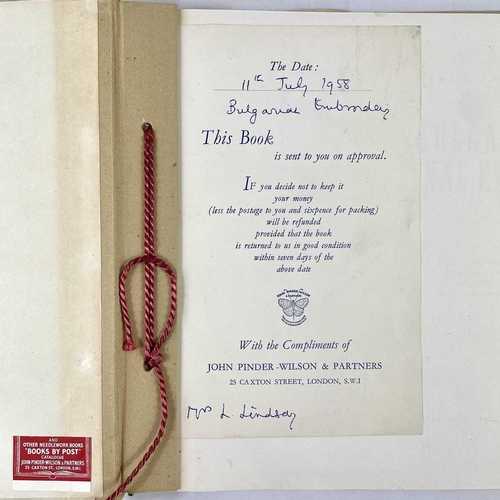 The Date:
11th July 1958
Bulgarian Embroidery
This Book
is sent to you on approval.
IF you decide not to keep it
your money
(less the postage to you and sixpence for packing)
will be refunded
provided that the book
is returned to us in good condition
within seven days of the
above date
With the Compliments of
JOHN PINDER-WILSON & PARTNERS
25 CAXTON STREET, LONDON, S.W.1
Mrs L. Lindsay
AND
OTHER NEEDLEWORK BOOKS
"BOOKS BY POST"
CATALOGUE
JOHN PINDER-WILSON & PARTNERS
25 CAXTON ST., LONDON, S.W.1.